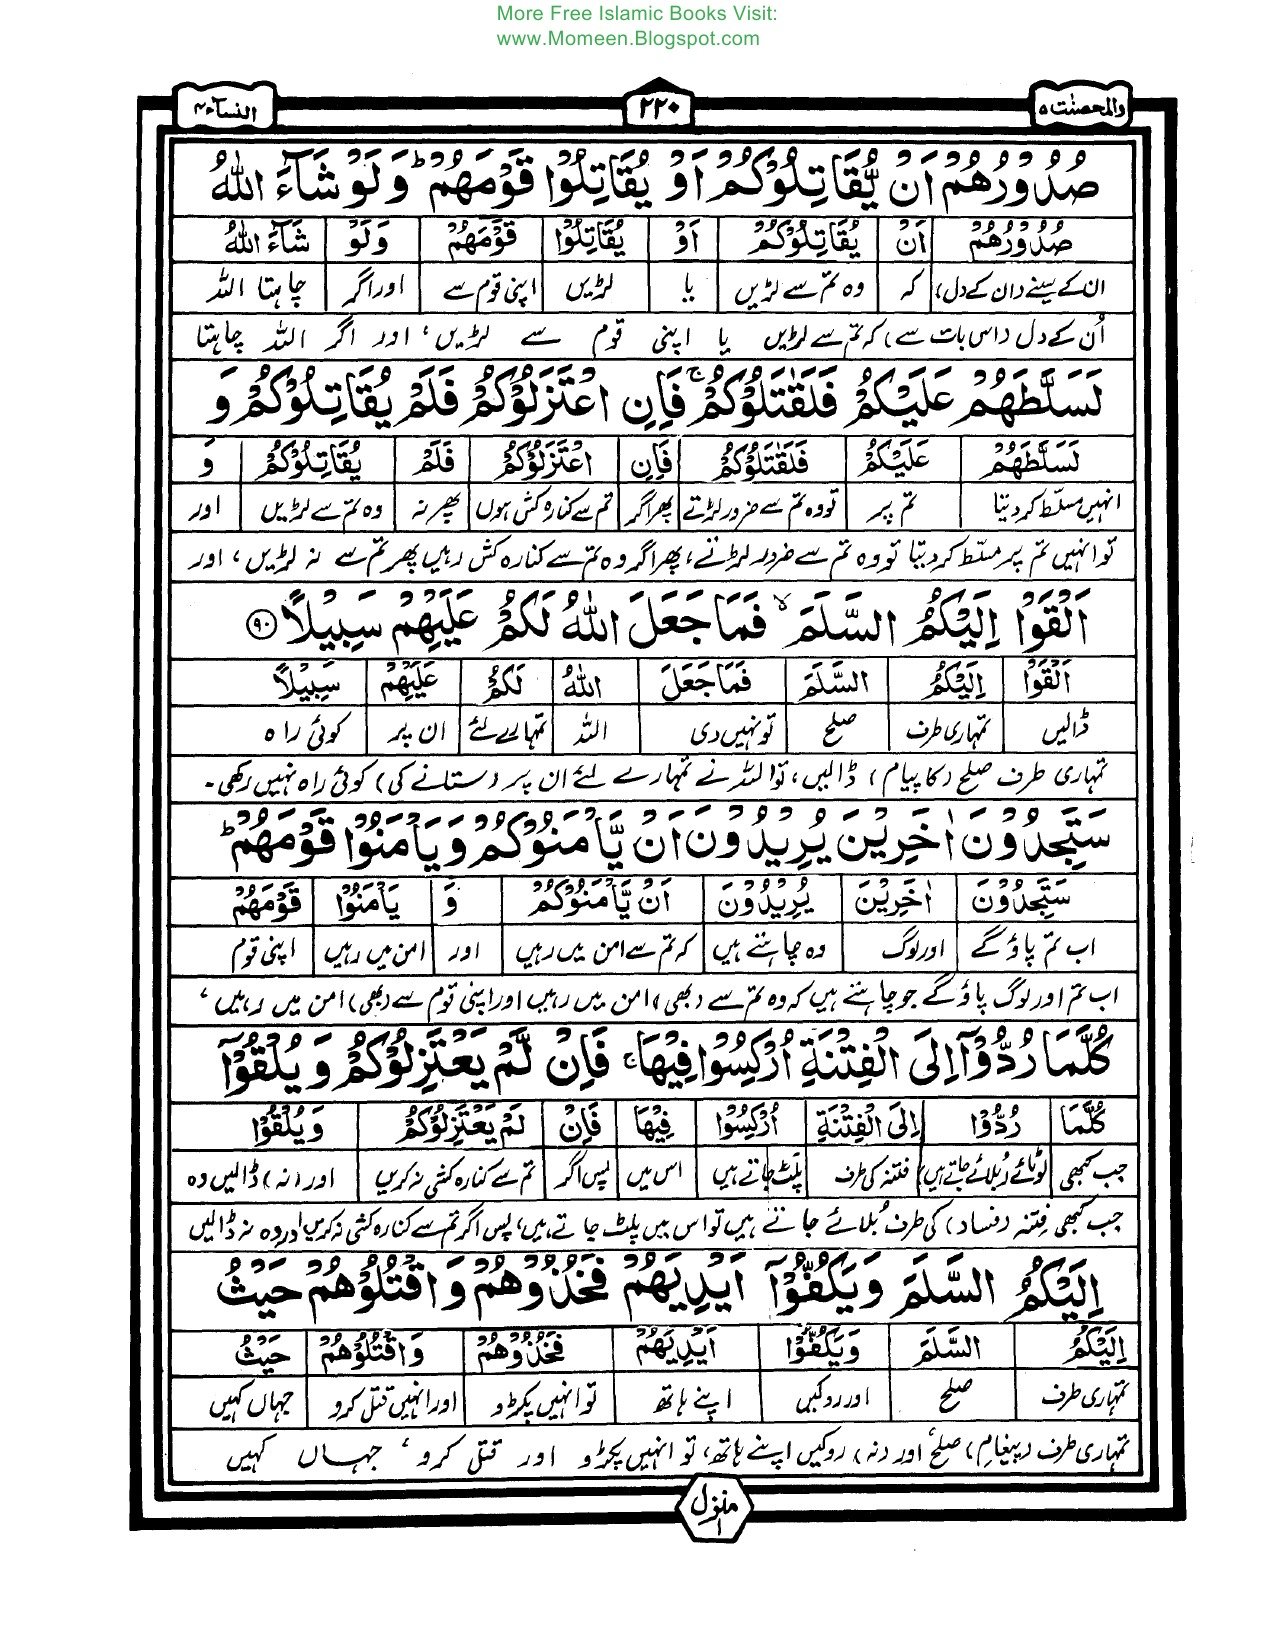 More Free Islamic Books Visit:
www.Momeen.Blogspot.com
والمحصنت ۵ ۲۲۰ النسآء ۴
صُدُوۡرُهُمۡ اَنۡ يُّقَاتِلُوۡكُمۡ اَوۡ يُقَاتِلُوۡا قَوۡمَهُمۡ ؕ وَلَوۡ شَآءَ اللّٰهُ
صُدُوۡرُهُمۡ اَنۡ يُقَاتِلُوۡكُمۡ اَوۡ يُقَاتِلُوۡا قَوۡمَهُمۡ وَلَوۡ شَآءَ اللّٰهُ
ان کے سینے (ان کے دل) کہ وہ تم سے لڑیں یا لڑیں اپنی قوم سے اور اگر چاہتا اللہ
اُن کے دل (اس بات سے) کہ تم سے لڑیں یا اپنی قوم سے لڑیں، اور اگر اللہ چاہتا
لَسَلَّطَهُمۡ عَلَيۡكُمۡ فَلَقٰتَلُوۡكُمۡ ۚ فَاِنِ اعۡتَزَلُوۡكُمۡ فَلَمۡ يُقَاتِلُوۡكُمۡ وَ
لَسَلَّطَهُمۡ عَلَيۡكُمۡ فَلَقٰتَلُوۡكُمۡ فَاِنِ اعۡتَزَلُوۡكُمۡ فَلَمۡ يُقَاتِلُوۡكُمۡ وَ
انہیں مسلط کر دیتا تم پر تو وہ تم سے ضرور لڑتے پھر اگر تم سے کنارہ کش ہوں پھر نہ وہ تم سے لڑیں اور
تو انہیں تم پر مسلّط کر دیتا تو وہ تم سے ضرور لڑتے، پھر اگر وہ تم سے کنارہ کش رہیں پھر تم سے نہ لڑیں، اور
اَلۡقَوۡا اِلَيۡكُمُ السَّلَمَ ۙ فَمَا جَعَلَ اللّٰهُ لَكُمۡ عَلَيۡهِمۡ سَبِيۡلًا ﴿۹۰﴾
اَلۡقَوۡا اِلَيۡكُمُ السَّلَمَ فَمَا جَعَلَ اللّٰهُ لَكُمۡ عَلَيۡهِمۡ سَبِيۡلًا
ڈالیں تمہاری طرف صلح تو نہیں دی اللہ تمہارے لئے ان پر کوئی راہ
تمہاری طرف صلح (کا پیام) ڈالیں، تو اللہ نے تمہارے لئے ان پر (ستانے کی) کوئی راہ نہیں رکھی۔
سَتَجِدُوۡنَ اٰخَرِيۡنَ يُرِيۡدُوۡنَ اَنۡ يَّاۡمَنُوۡكُمۡ وَيَاۡمَنُوۡا قَوۡمَهُمۡ ؕ
سَتَجِدُوۡنَ اٰخَرِيۡنَ يُرِيۡدُوۡنَ اَنۡ يَّاۡمَنُوۡكُمۡ وَ يَاۡمَنُوۡا قَوۡمَهُمۡ
اب تم پاؤ گے اور لوگ وہ چاہتے ہیں کہ تم سے امن میں رہیں اور امن میں رہیں اپنی قوم
اب تم اور لوگ پاؤ گے جو چاہتے ہیں کہ وہ تم سے (بھی) امن میں رہیں اور اپنی قوم سے (بھی) امن میں رہیں،
كُلَّمَا رُدُّوۡۤا اِلَى الۡفِتۡنَةِ اُرۡكِسُوۡا فِيۡهَا ۚ فَاِنۡ لَّمۡ يَعۡتَزِلُوۡكُمۡ وَيُلۡقُوۡۤا
كُلَّمَا رُدُّوۡا اِلَى الۡفِتۡنَةِ اُرۡكِسُوۡا فِيۡهَا فَاِنۡ لَمۡ يَعۡتَزِلُوۡكُمۡ وَيُلۡقُوۡا
جب کبھی لوٹائے (بلائے) جاتے ہیں فتنہ کی طرف پلٹ جاتے ہیں اس میں پس اگر تم سے کنارہ کشی نہ کریں اور (نہ) ڈالیں وہ
جب کبھی فِتنہ (فساد) کی طرف بُلائے جاتے ہیں تو اس میں پلٹ جاتے ہیں، پس اگر تم سے کنارہ کشی نہ کریں اور وہ نہ ڈالیں
اِلَيۡكُمُ السَّلَمَ وَيَكُفُّوۡۤا اَيۡدِيَهُمۡ فَخُذُوۡهُمۡ وَاقۡتُلُوۡهُمۡ حَيۡثُ
اِلَيۡكُمُ السَّلَمَ وَيَكُفُّوۡۤا اَيۡدِيَهُمۡ فَخُذُوۡهُمۡ وَاقۡتُلُوۡهُمۡ حَيۡثُ
تمہاری طرف صلح اور روکیں اپنے ہاتھ تو انہیں پکڑو اور انہیں قتل کرو جہاں کہیں
تمہاری طرف (پیغام) صلح اور (نہ) روکیں اپنے ہاتھ، تو انہیں پکڑو اور قتل کرو، جہاں کہیں
منزل ۱